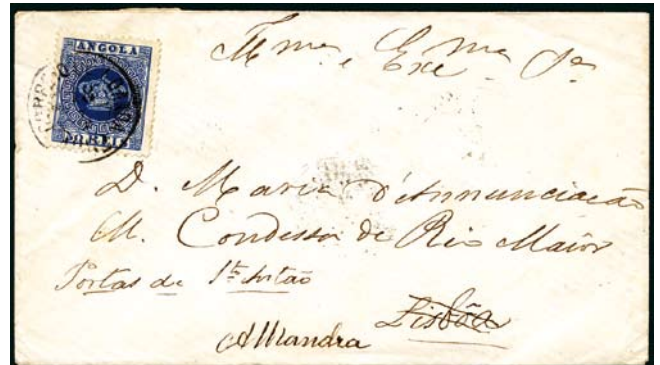 ANGOLA
50 REIS
CORREIO
Illma e Exma Sra
D. Maria d'Annunciação
M. Condessa de Rio Maior
Portas de Sto Antão
Lisbôa
Alhandra